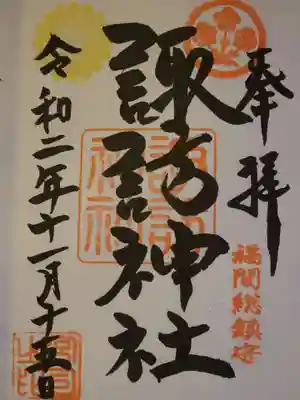 奉拝
福間総鎮守
諏訪神社
諏訪神社
令和二年十一月十五日